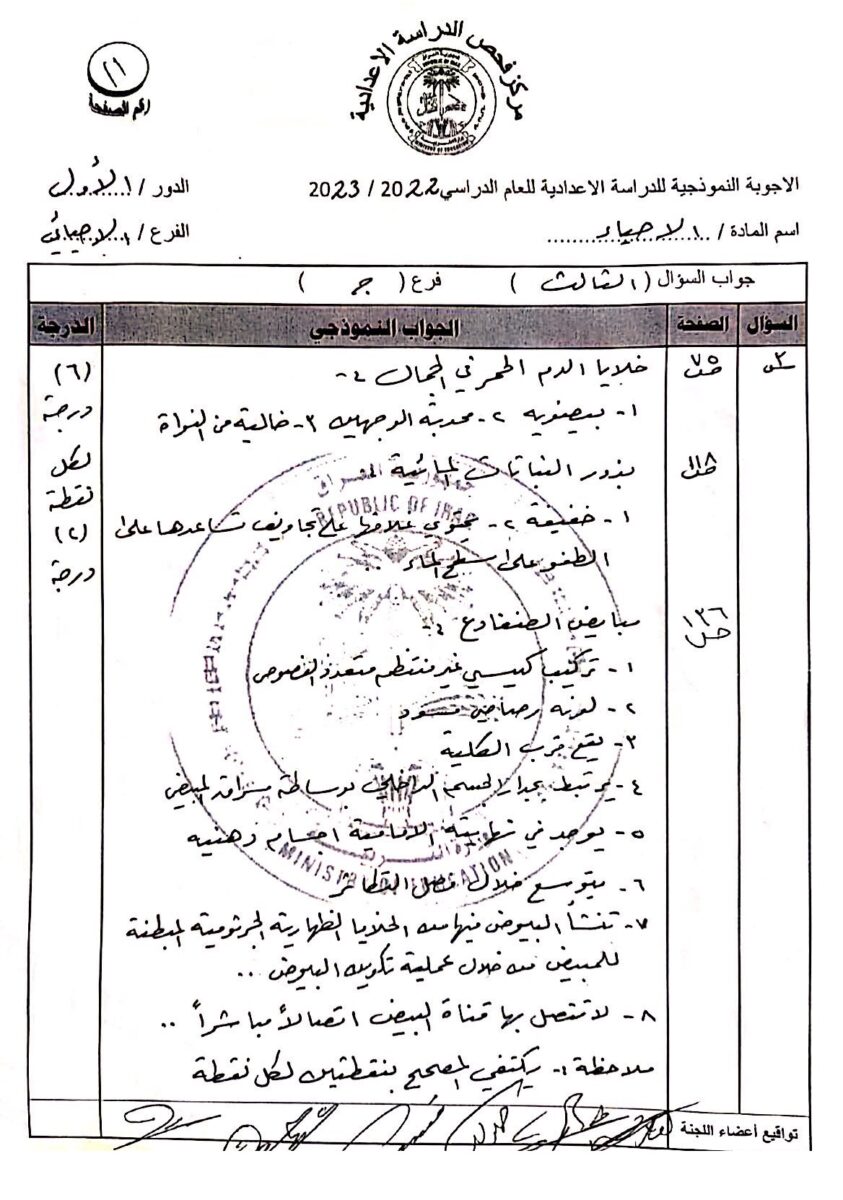 مركز فحص الدراسة الاعدادية
٢١
رقم الصفحة
الاجوبة النموذجية للدراسة الاعدادية للعام الدراسي 2022 / 2023
الدور / الأول
اسم المادة / الاحياء
الفرع / الاحيائي
جواب السؤال ( الثالث ) فرع ( جـ )
السؤال الصفحة الجواب النموذجي الدرجة
س٣ ص٧٥ خلايا الدم الحمر في الجمال :-
(٦) درجة
١- بيضوية ٢- محدبة الوجهين ٣- خالية من النواة
ص١١٨ بذور النباتات المائية :
لكل نقطة (٢) درجة
١- خفيفة ٢- يحتوي غلافها على تجاويف تساعدها على
الطفو على سطح الماء ..
ص١٣٦ مبايض الضفادع :-
١- تركيب كيسي غير منتظم متعدد الفصوص
٢- لونه رصاصي مسود
٣- يقع قرب الكلية
٤- يرتبط بجدار الجسم الداخلي بوساطة مسراق المبيض
٥- يوجد في نهايته الامامية اجسام دهنيه
٦- يتوسع خلال فصل التكاثر
٧- تنشأ البيوض فيها من الخلايا الظهارية الجرثومية المبطنة
للمبيض من خلال عملية تكوين البيوض ..
٨- لا تتصل بها قناة البيض اتصالاً مباشراً ..
ملاحظة :- يكتفي المصحح بنقطتين لكل نقطة
تواقيع أعضاء اللجنة
REPUBLIC OF IRAQ
MINISTRY OF EDUCATION